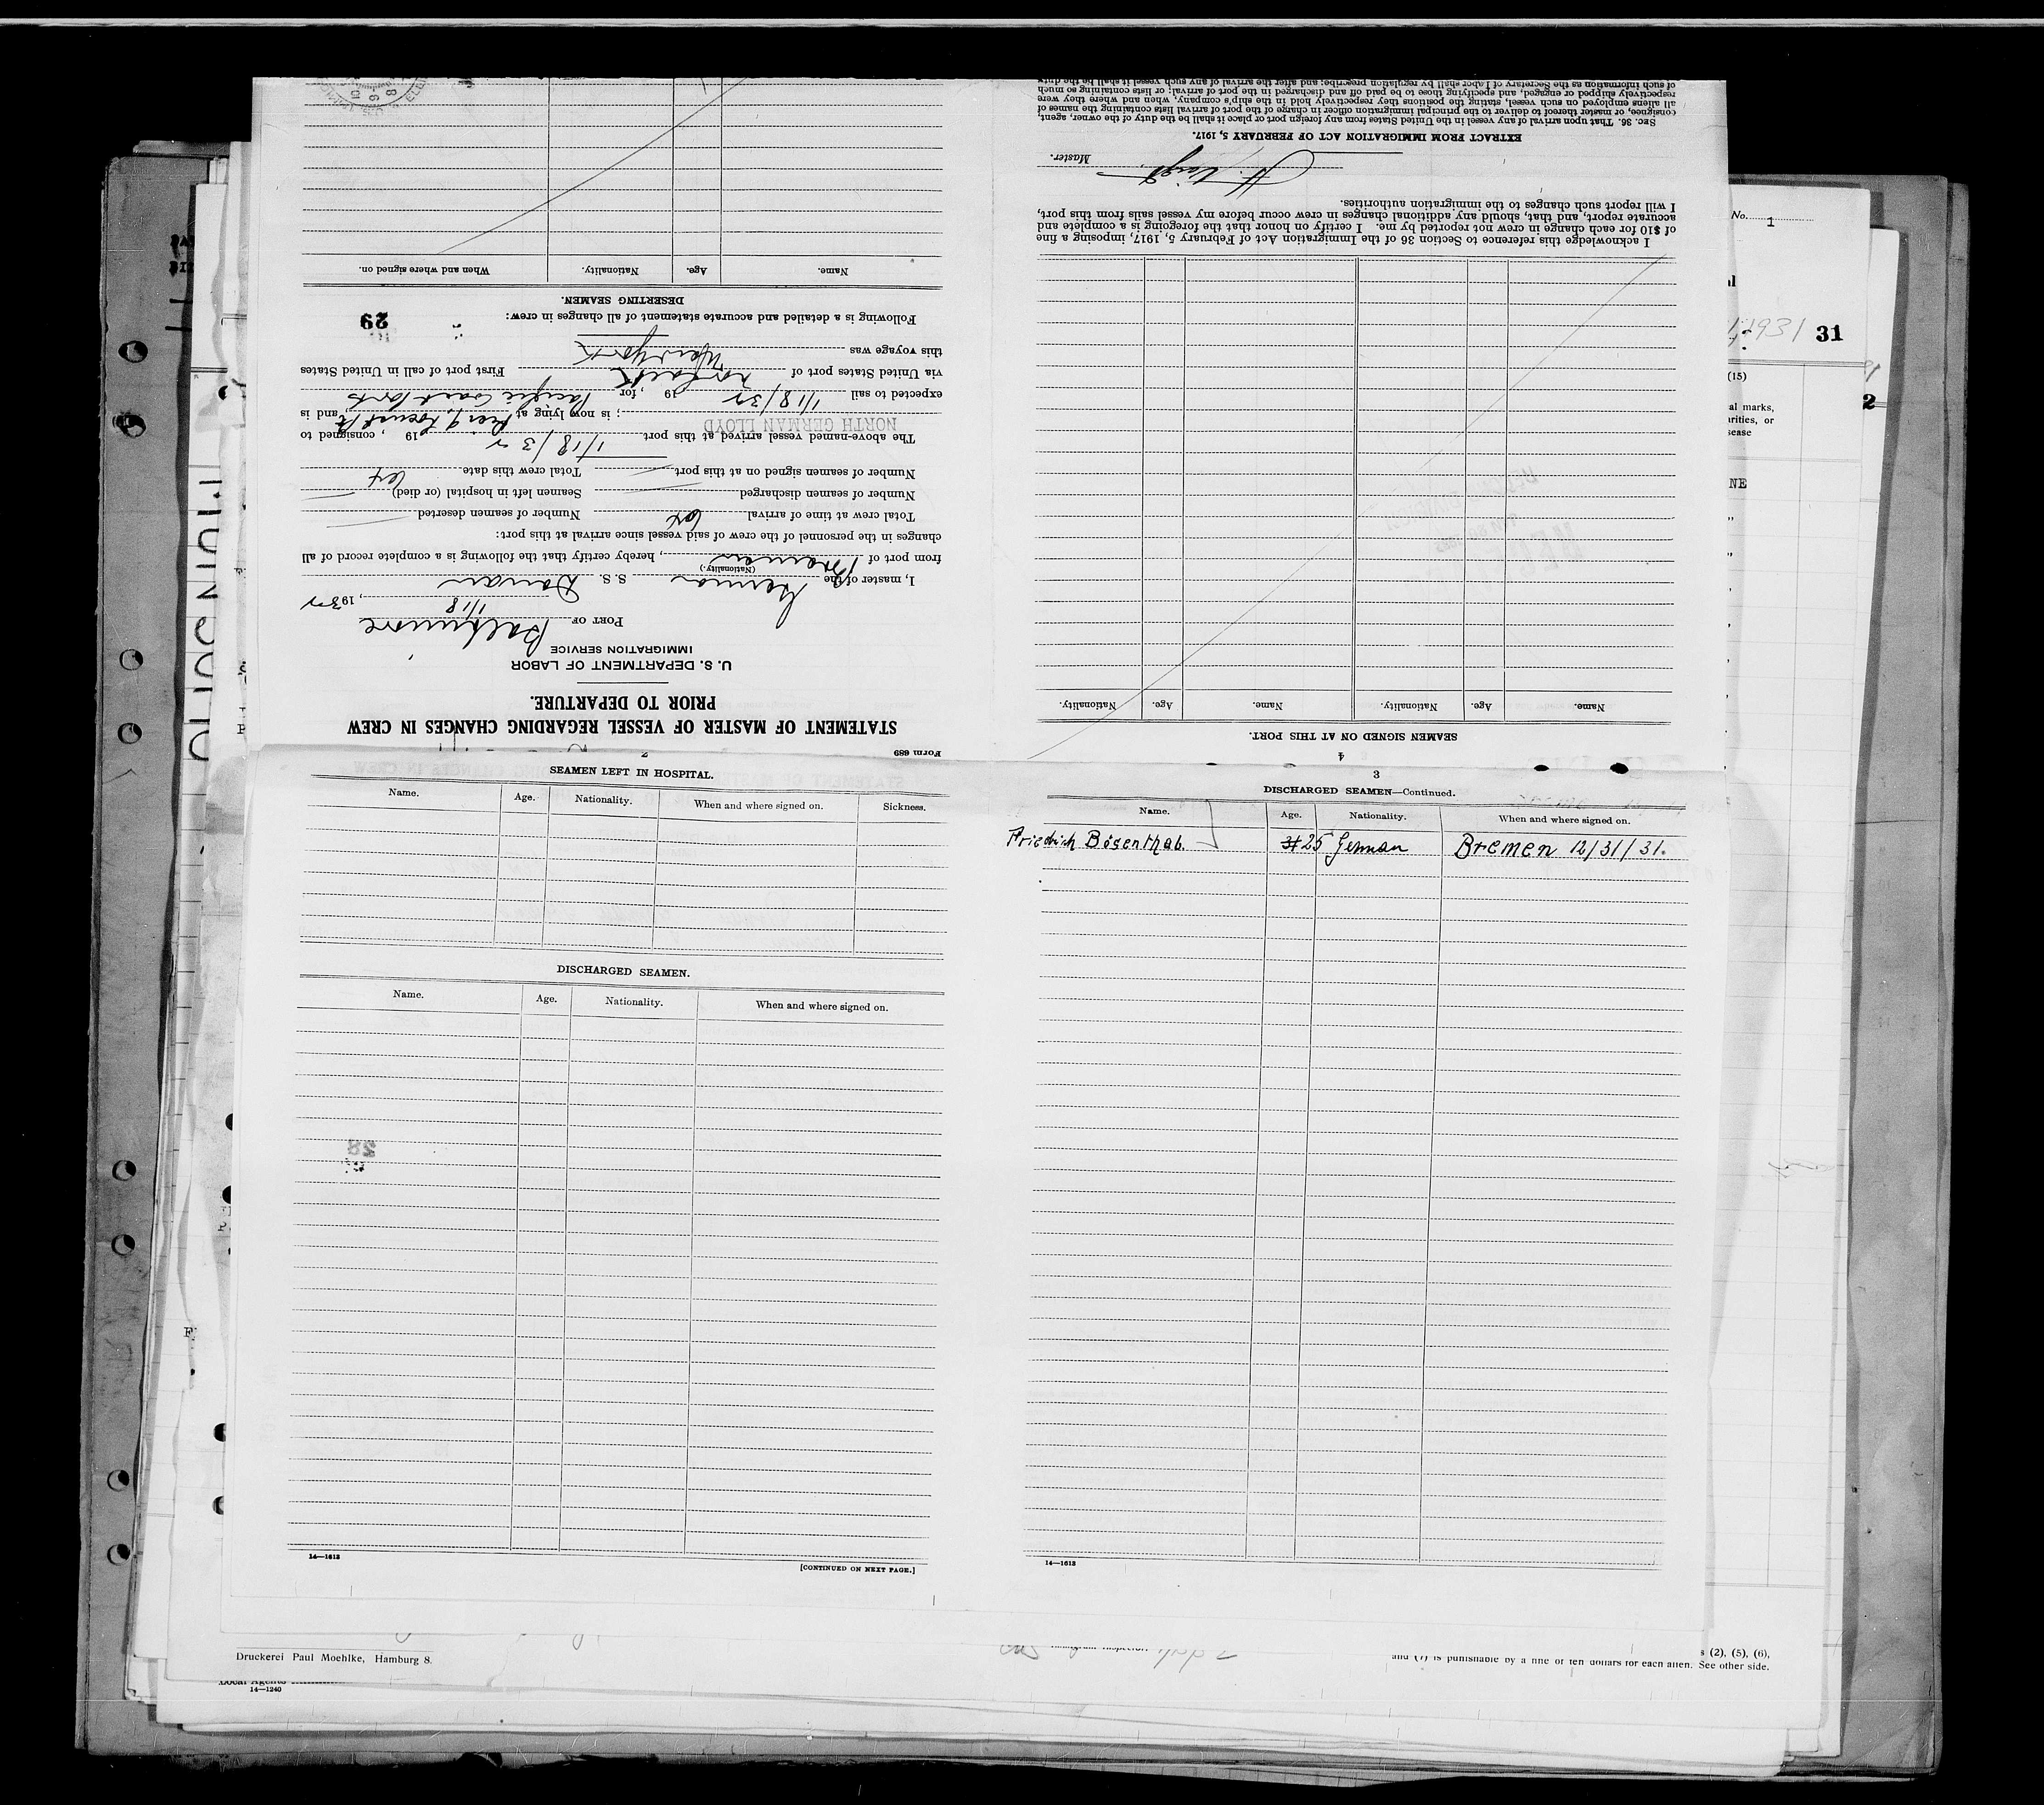 Form 689
STATEMENT OF MASTER OF VESSEL REGARDING CHANGES IN CREW
PRIOR TO DEPARTURE.
U. S. DEPARTMENT OF LABOR
IMMIGRATION SERVICE
PORT OF Baltimore
1/18, 1932
I, master of the German S. S. Donau
(Nationality.)
from port of Bremen, hereby certify that the following is a complete record of all
changes in the personnel of the crew of said vessel since arrival at this port:
Total crew at time of arrival Number of seamen deserted
Number of seamen discharged Seamen left in hospital (or died)
Number of seamen signed on at this port Total crew this date
The above-named vessel arrived at this port 1/18/32 19 , consigned to
NORTH GERMAN LLOYD ; is now lying at Pier 9, Locust Pt, and is
expected to sail 1/18/32 19 , for Pacific Coast Ports
via United States port of First port of call in United States
this voyage was New York
Following is a detailed and accurate statement of all changes in crew:
29
DESERTING SEAMEN.
Name. Age. Nationality. When and where signed on.
4
SEAMEN SIGNED ON AT THIS PORT.
Name. Age. Nationality. Name. Age. Nationality.
I acknowledge this reference to Section 36 of the Immigration Act of February 5, 1917, imposing a fine
of $10 for each change in crew not reported by me. I certify on honor that the foregoing is a complete and
accurate report, and that, should any additional changes in crew occur before my vessel sails from this port,
I will report such changes to the immigration authorities.
Master.
EXTRACT FROM IMMIGRATION ACT OF FEBRUARY 5, 1917.
SEC. 36. That upon arrival of any vessel in the United States from any foreign port or place it shall be the duty of the owner, agent,
consignee, or master thereof to deliver to the principal immigration officer in charge of the port of arrival lists containing the names of
all aliens employed on such vessel, stating the positions they respectively hold in the ship's company, when and where they were
respectively shipped or engaged, and specifying those to be paid off and discharged in the port of arrival; or lists containing so much
of such information as the Secretary of Labor shall by regulation prescribe; and after the arrival of any such vessel it shall be the duty
2
SEAMEN LEFT IN HOSPITAL.
Name. Age. Nationality. When and where signed on. Sickness.
DISCHARGED SEAMEN.
Name. Age. Nationality. When and where signed on.
14—1613
[CONTINUED ON NEXT PAGE.]
3
DISCHARGED SEAMEN—Continued.
Name. Age. Nationality. When and where signed on.
Friedrich Bösenthal. 25 German Bremen 12/31/31.
14—1613
No. 1
1931 31
2
(15)
Druckerei Paul Moehlke, Hamburg 8.
s (2), (5), (6),
and (7) is punishable by a fine of ten dollars for each alien. See other side.
Local Agents
14—1240